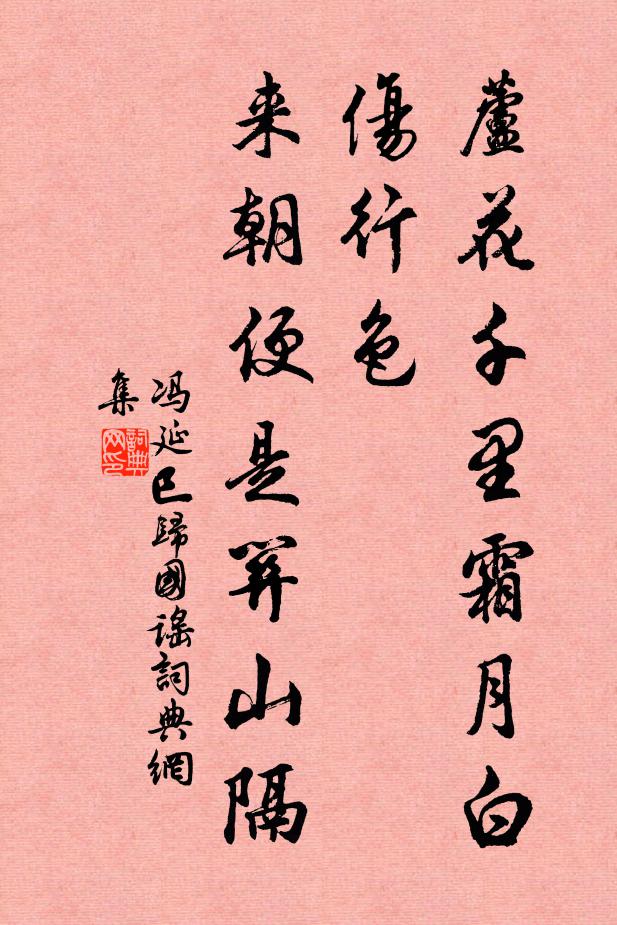 蘆花千里霜月白
傷行色
来朝便是關山隔
冯延巳歸國謠詞典網
集
詞典
网印